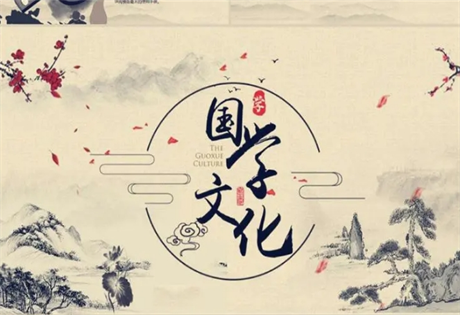 学
国学
THE
GUOXUE
CULTURE
文化